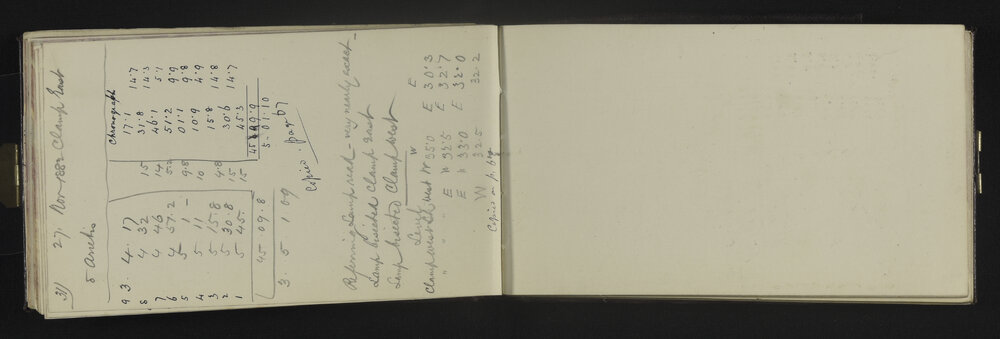 31) 27. Nov 1882 Clamp East
δ Arietis
Chronograph
9 3. 4. 17 17.1 14.7
8 4 32 15 31.8 14.3
7 4 46 14 46.1 5.1
6 4 51.2 5.2 51.2 9.9
5 5 1 - 9.8 01.1 9.8
4 5 11 10 10.9 4.9
3 5 15.8 4.8 15.8 14.8
2 5 30.8 15 30.6 14.7
1 5 45. 15 45.3
45.09.8 45 09.9
3. 5 1.09 5.01.10
Copied page 67
Lamp bisected Clamp East
Lamp bisected Clamp West
Level W E
Clamp West W 35.0 E 30.3
" E W 32.5 E 32.7
E W 33.0 E 32.0
W 32.5 32.2
Copied on p. 69